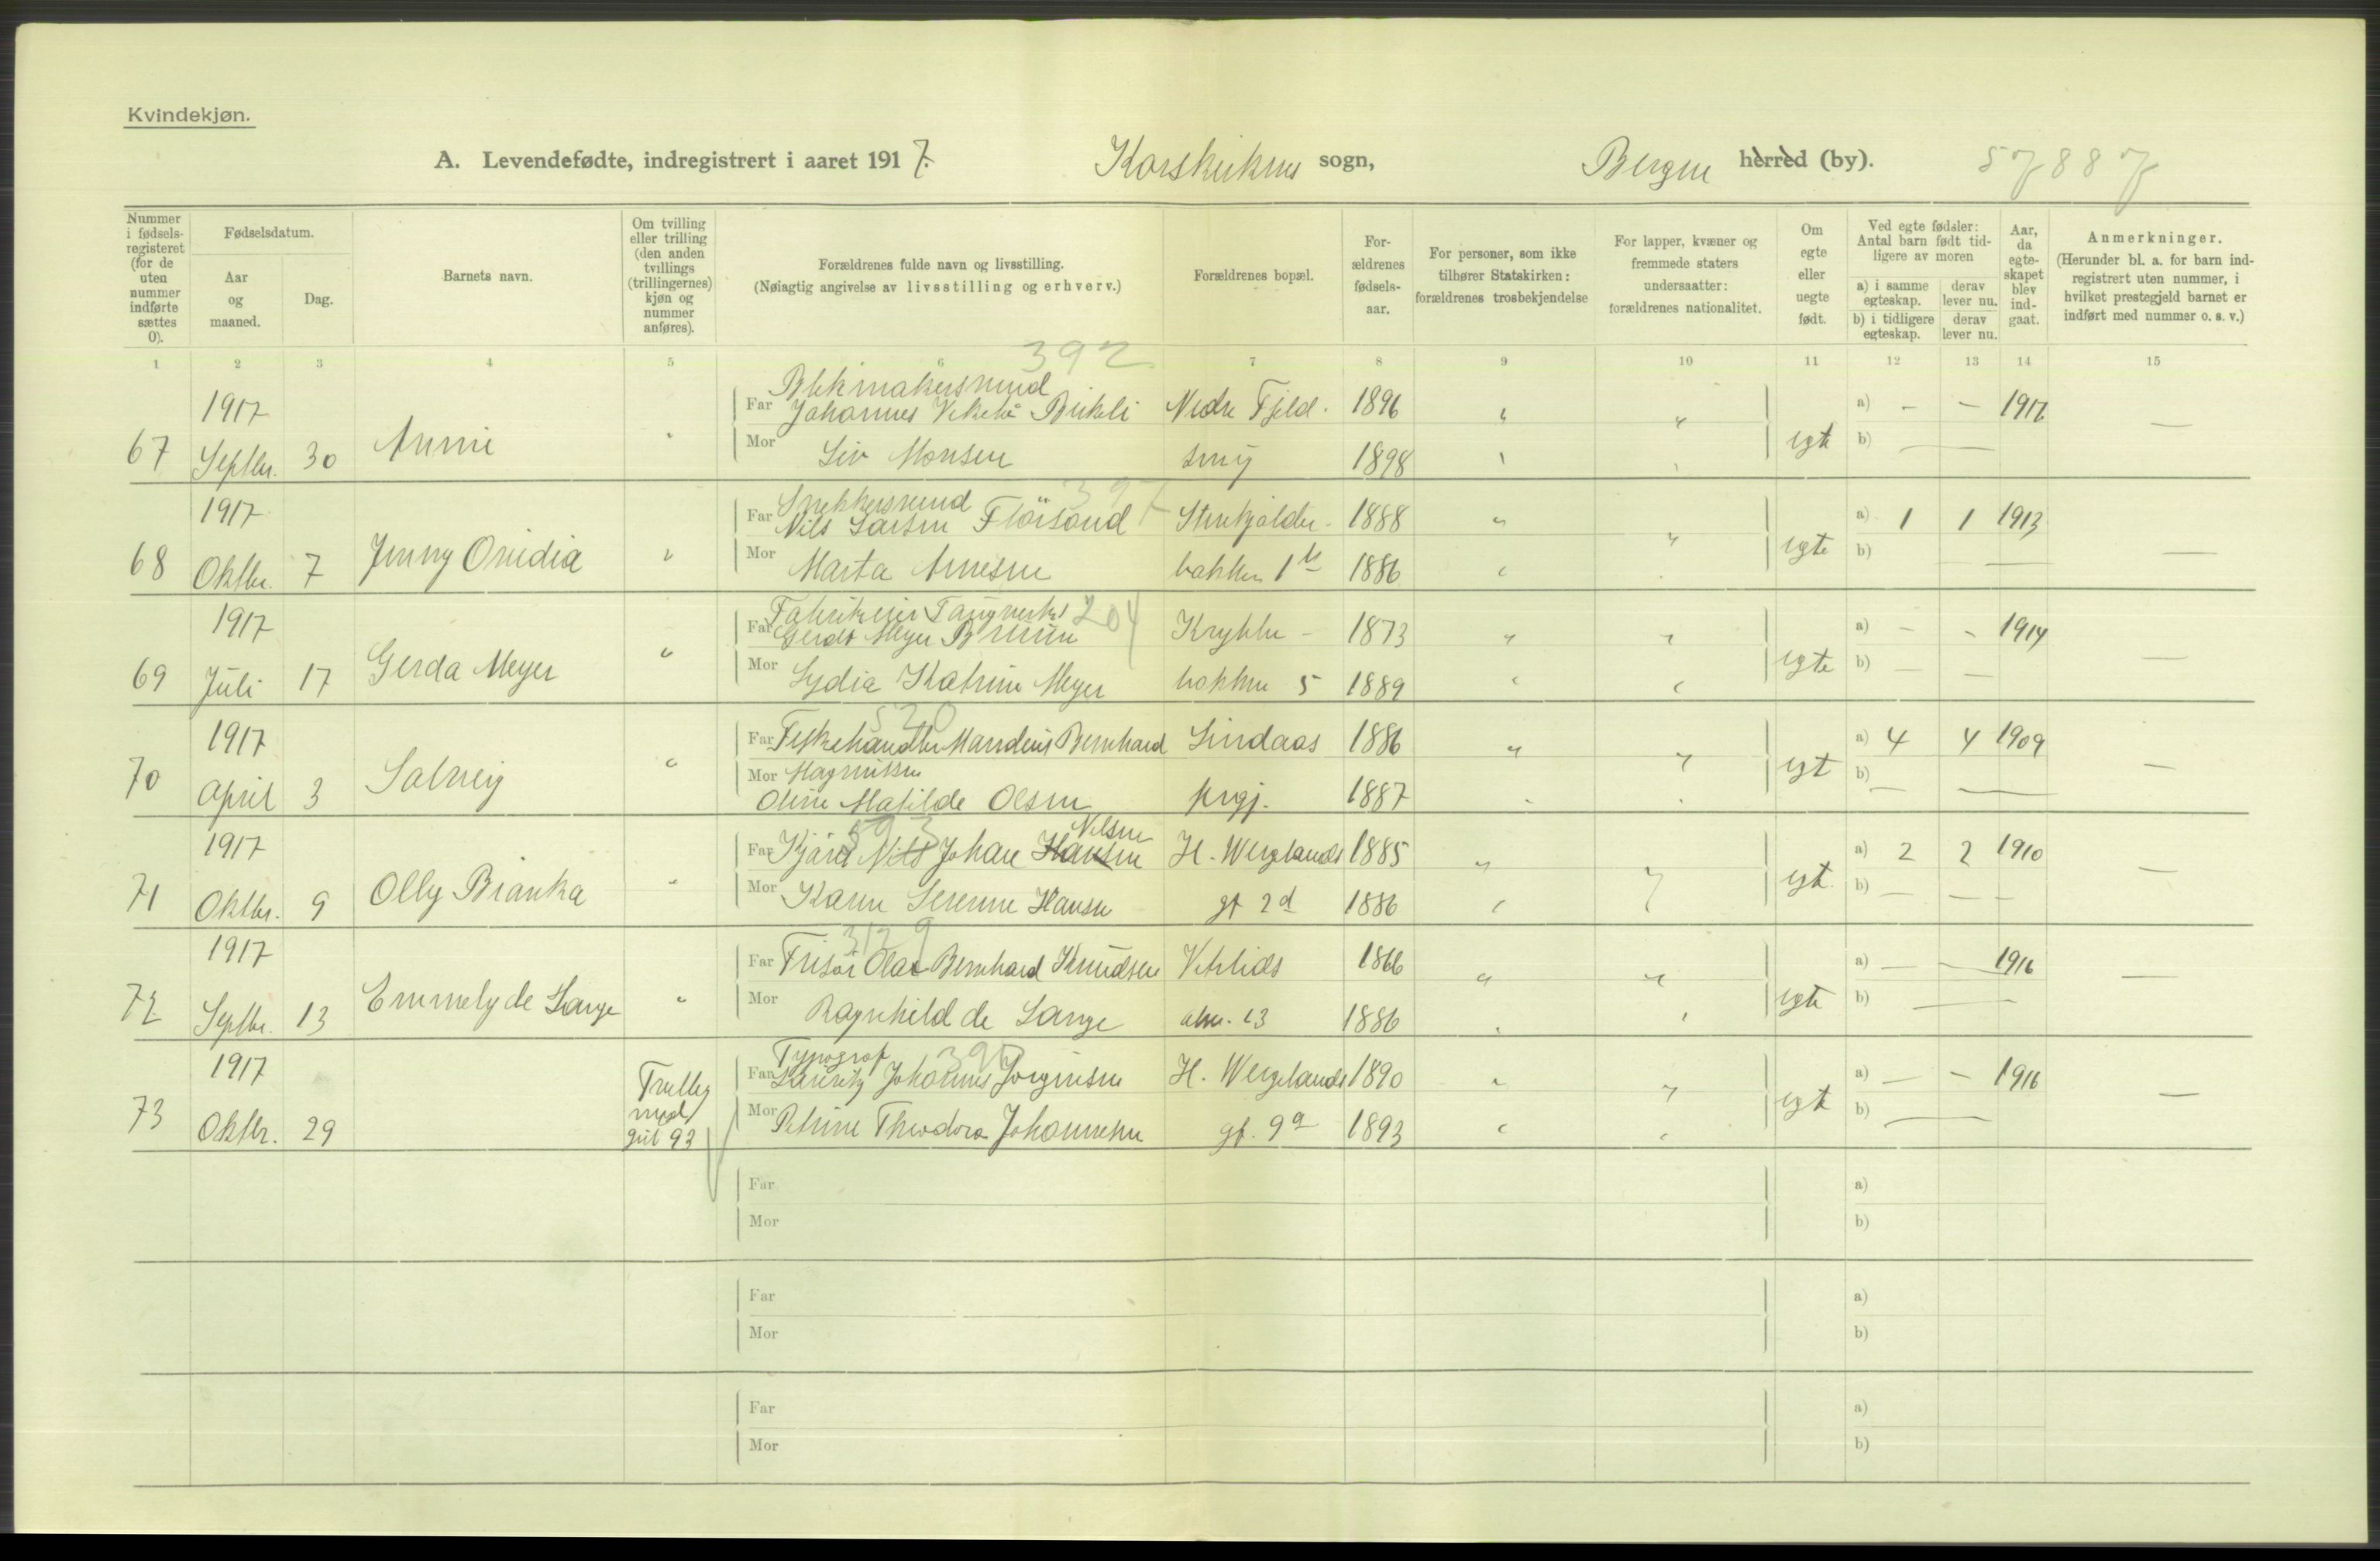 Kvindekjøn.
A. Levendefødte, indregistrert i aaret 1917. Korskirkens sogn, Bergen herred (by). 57887
Nummer i fødselsregisteret (for de uten nummer indførte sættes 0).
Fødselsdatum.
Aar og maaned.
Dag.
Barnets navn.
Om tvilling eller trilling (den anden tvillings (trillingernes) kjøn og nummer anføres).
Forældrenes fulde navn og livsstilling.
(Nøiagtig angivelse av livsstilling og erhverv.)
Forældrenes bopæl.
Forældrenes fødselsaar.
For personer, som ikke tilhører Statskirken: forældrenes trosbekjendelse
For lapper, kvæner og fremmede staters undersaatter: forældrenes nationalitet.
Om egte eller uegte født.
Ved egte fødsler: Antal barn født tidligere av moren
a) i samme egteskap. derav lever nu.
b) i tidligere egteskap. derav lever nu.
Aar, da egteskapet blev indgaat.
Anmerkninger.
(Herunder bl. a. for barn indregistrert uten nummer, i hvilket prestegjeld barnet er indført med nummer o. s. v.)
1 2 3 4 5 6 7 8 9 10 11 12 13 14 15
392
Blikmakersvend
1917 Far Johannes Birkeli Nedre Fjeld- 1896 " " a) - - 1917
67 Septbr. 30 Annie " Mor Liv Monsen smug 1898 " " egte b) — —
397
Snekkersvend
1917 Far Nils Larsen Flörsand Stenkjælder- 1888 " " a) 1 1 1913
68 Oktbr. 7 Jenny Ovidia " Mor Marta Arnesen bakken 1b 1886 " " egte b) — — —
204
1917 Far Gerdt Meyer Bruun Krybbe- 1873 " " a) - - 1914
69 Juli 17 Gerda Meyer " Mor Lydia Katrine Meyer bakken 5 1889 " " egte b) — — —
520
1917 Far Fiskehandler Mandius Bernhard Lindaas 1886 " " a) 4 4 1909
Magnussen
70 April 3 Solveig " Mor Oline Matilde Olsen prgj. 1887 " " egte b) — — —
593
Nilsen
1917 Far Nils Johan Hansen H. Wergelands 1885 " " a) 2 2 1910
71 Oktbr. 9 Olly Bianka " Mor Karen Serenne Hansen gt 2d 1886 " " egte b) — — —
3129
1917 Far Frisør Olaf Bernhard Knudsen Vetrlids 1866 " " a) — — 1916
72 Septbr. 13 Emmely de Lange " Mor Ragnhild de Lange alm. 13 1886 " " egte b) — —
Typograf
1917 Far Lauritz Johannes Jørgensen H. Wergelands 1890 " " a) — - 1916
73 Oktbr. 29 Tvilling med gut 93 Mor Petrine Theodora Johannesen gt. 9a 1893 " " egte b) — —
Far a)
Mor b)
Far a)
Mor b)
Far a)
Mor b)